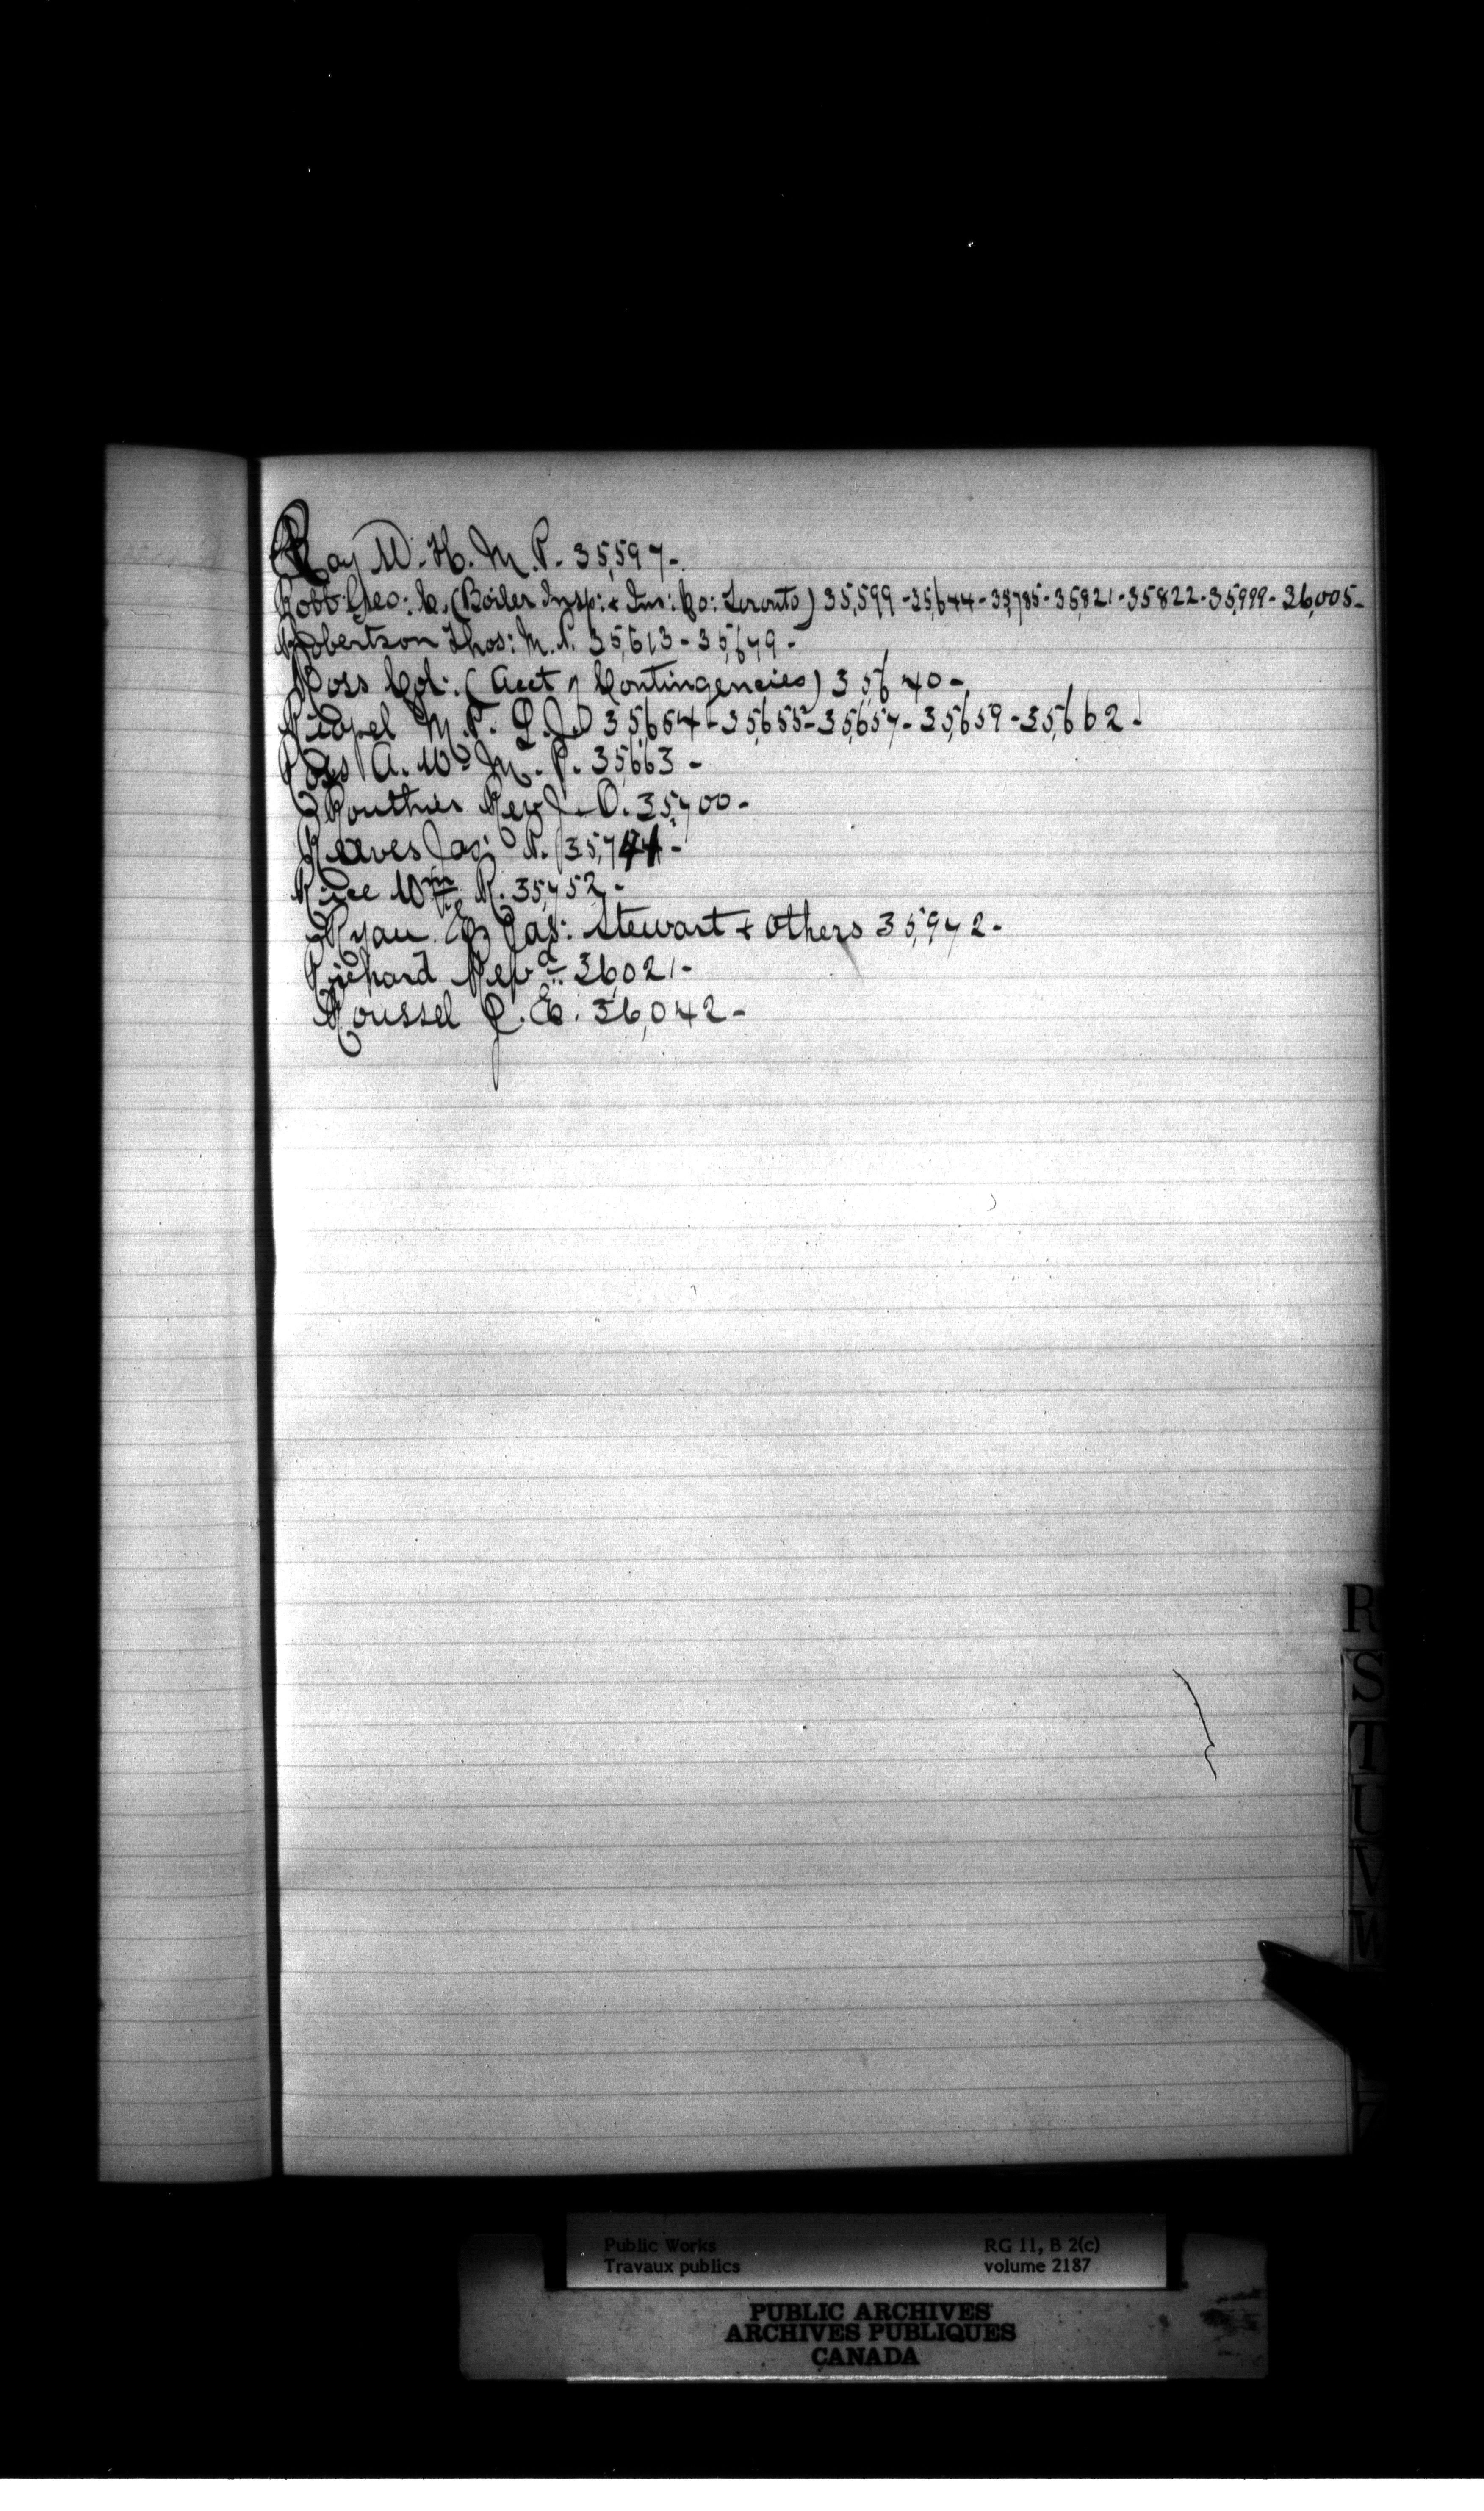 Ray W. H. M. P. 35,597-
Robb Geo: C. (Boiler Insp: & Ins: Co: Toronto) 35,599-35,644-35,785-35,821-35822-35,999-36,005-
Robertson Thos: M. P. 35,613-35,649-
Ross Col: (Acct of Contingencies) 35,640-
Riopel M. P. L. J. 35,654-35,655-35,657-35,659-35,662-
Ross A. W. M. P. 35,663-
Routhier Rev J. O. 35,700-
Reeves Jas: P. 35,744-
Rice Wm R. 35,752-
Ryan E. Jas: Stewart & others 35,972-
Richard Revd 36,021-
Roussel J. E. 36,042-
R
S
T
U
V
W
Public Works
Travaux publics
RG 11, B 2(c)
volume 2187
PUBLIC ARCHIVES
ARCHIVES PUBLIQUES
CANADA